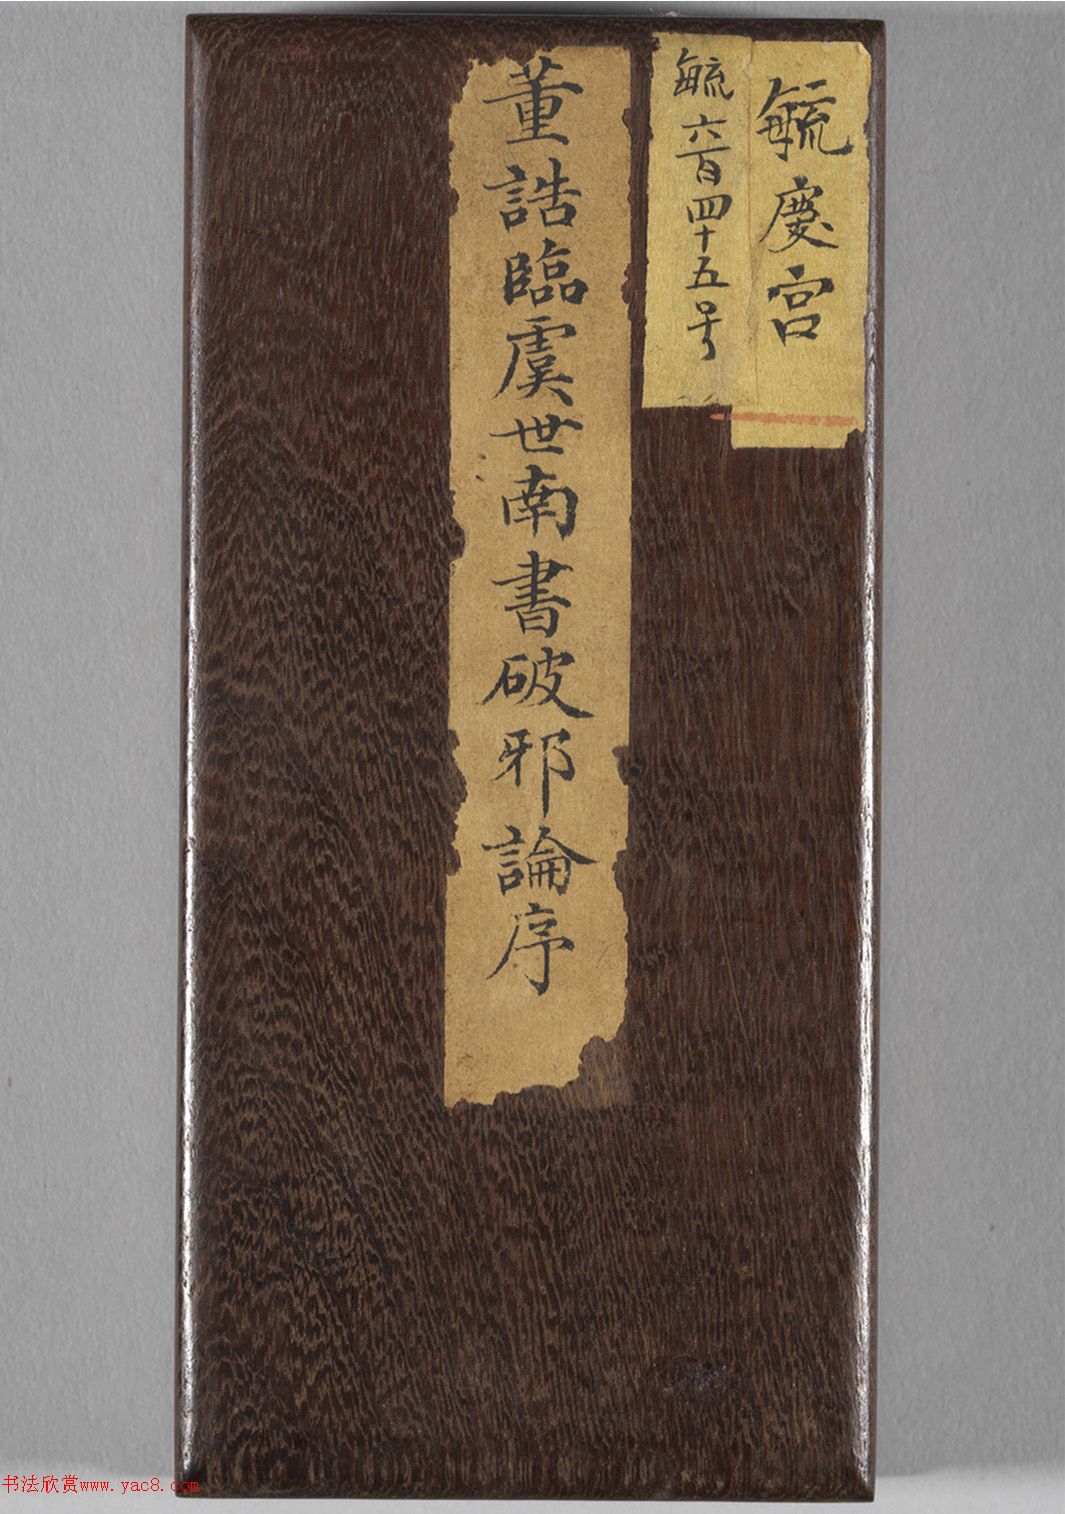 毓慶宮
毓六百四十五号
董誥臨虞世南書破邪論序
书法欣赏www.yac8.com